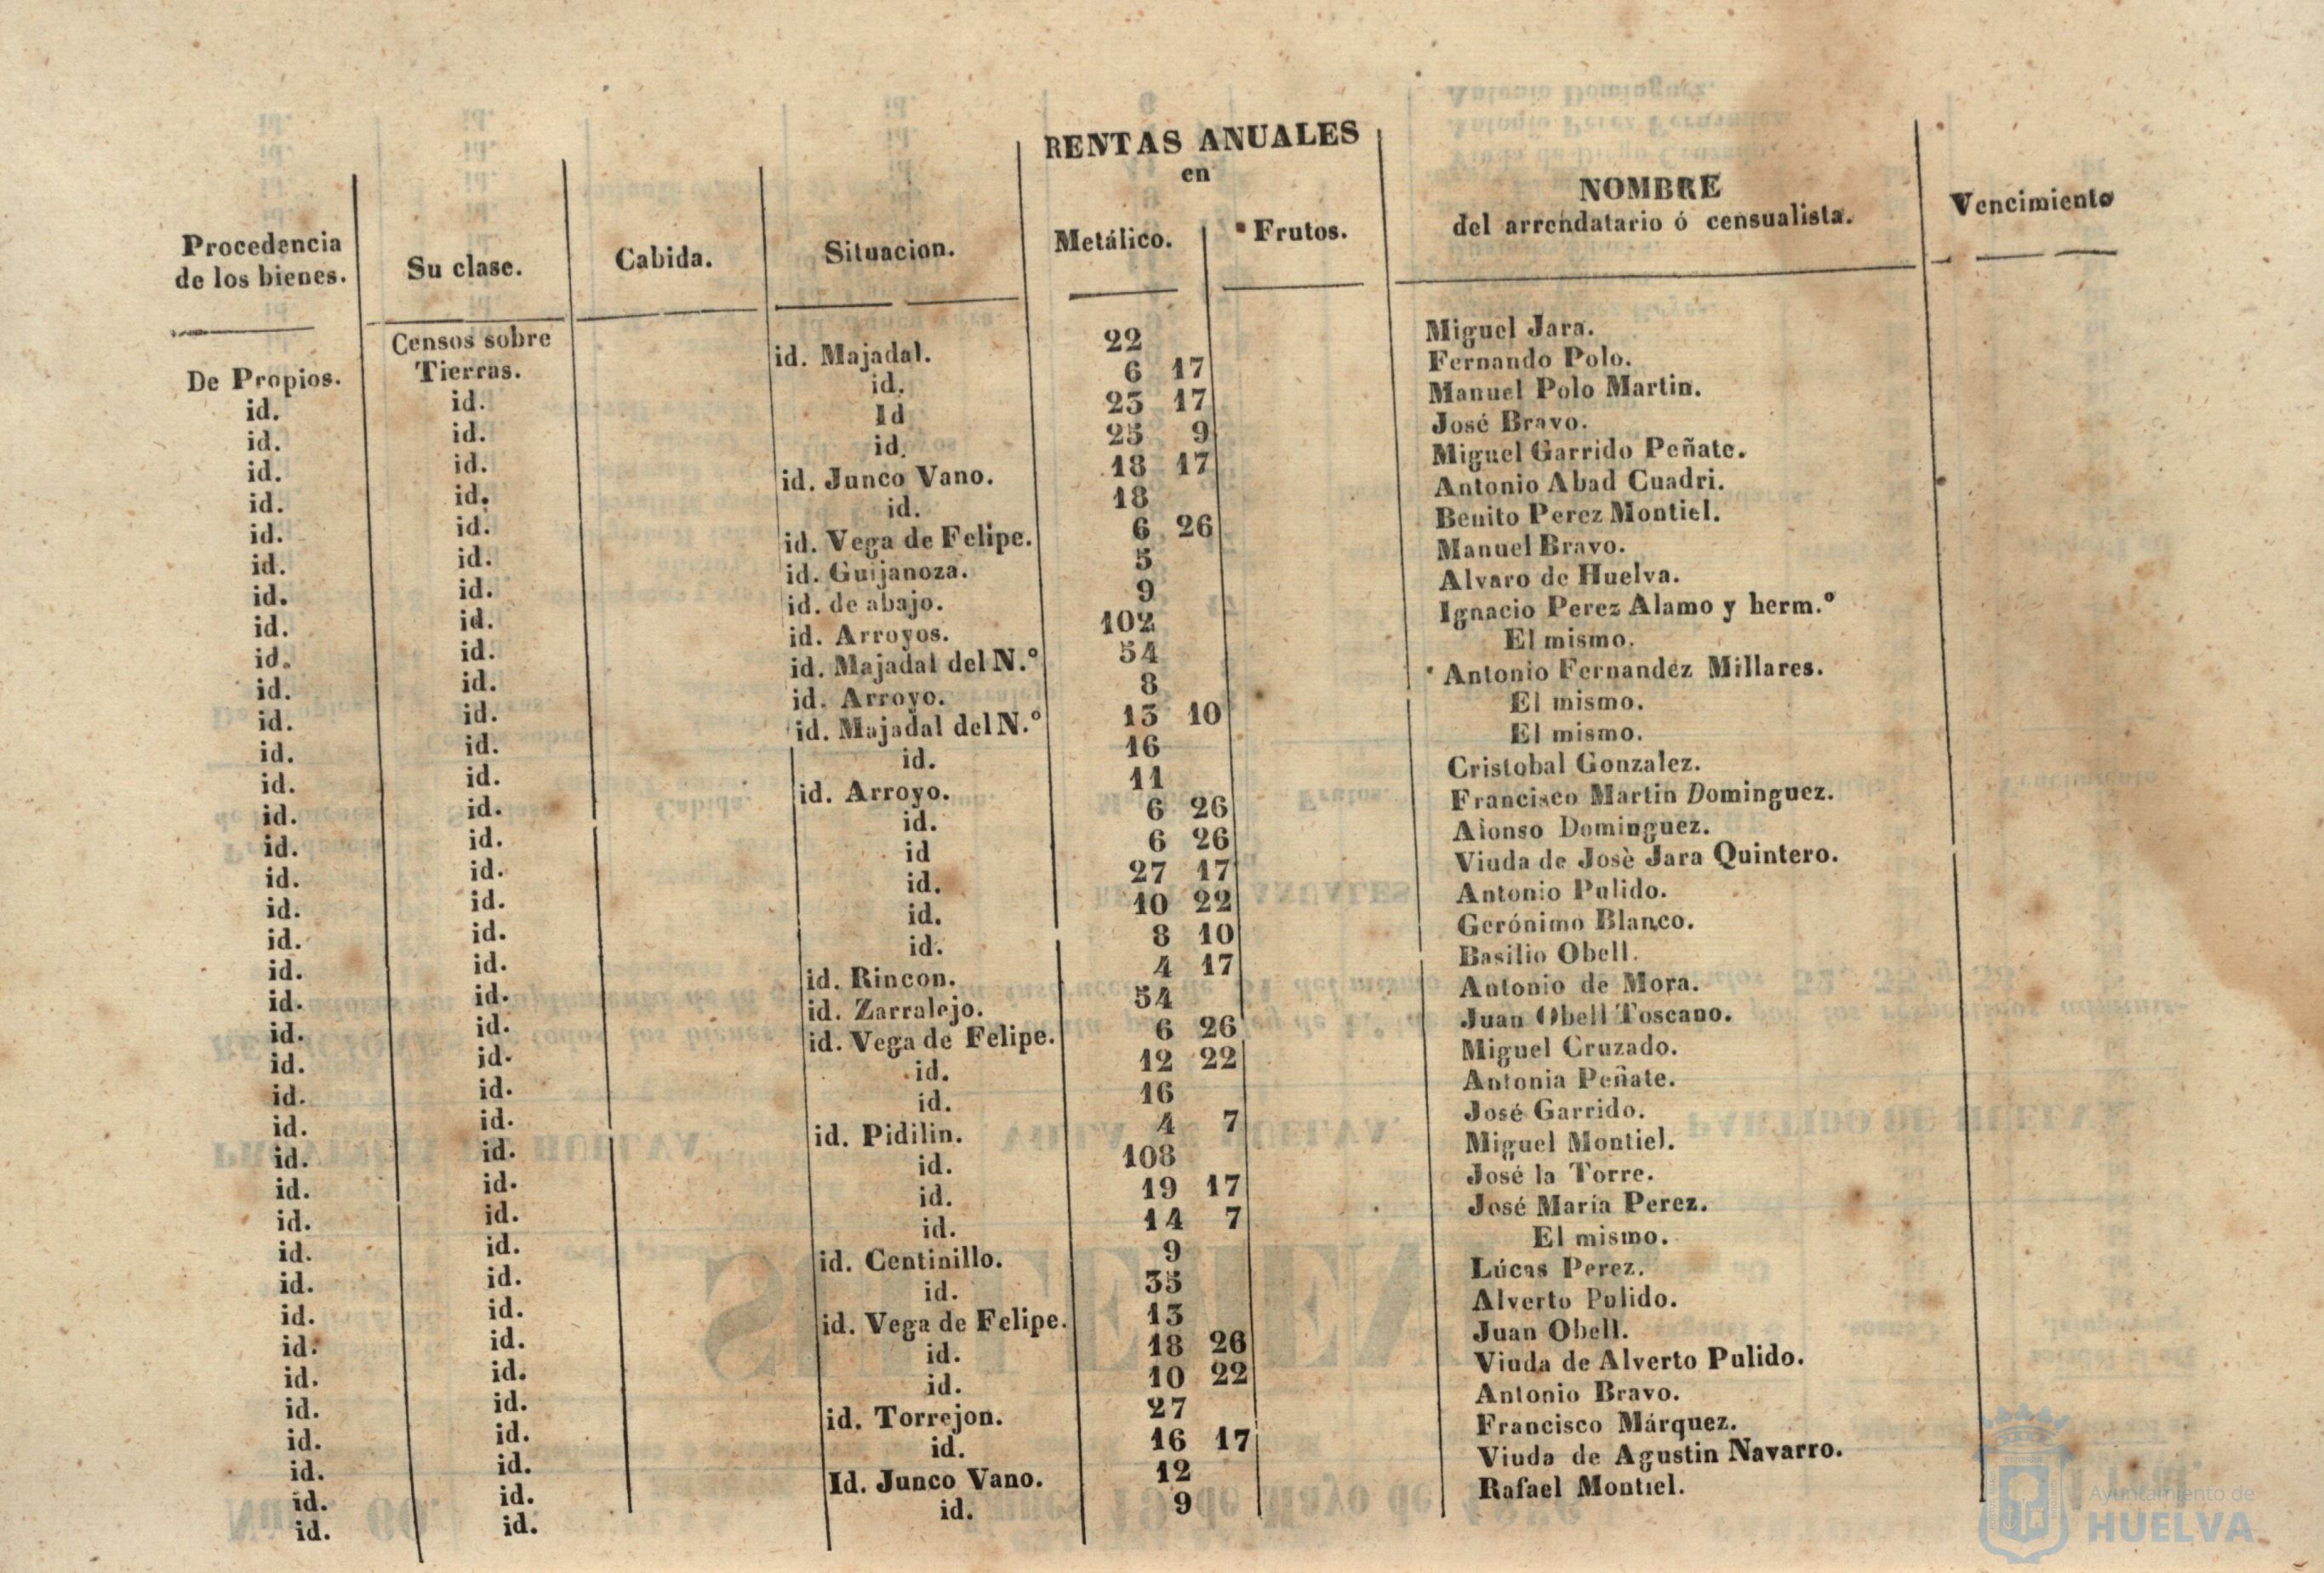 RENTAS ANUALES
en
Procedencia de los bienes. Su clase. Cabida. Situacion. Metálico. Frutos. NOMBRE del arrendatario ó censualista. Vencimiento
Censos sobre
De Propios. Tierras. id. Majadal. 22 Miguel Jara.
id. id. id. 6 17 Fernando Polo.
id. id. Id 23 17 Manuel Polo Martin.
id. id. id. 25 9 José Bravo.
id. id. id. Junco Vano. 18 17 Miguel Garrido Peñate.
id. id. id. 18 Antonio Abad Cuadri.
id. id. id. Vega de Felipe. 6 26 Benito Perez Montiel.
id. id. id. Guijanoza. 5 Manuel Bravo.
id. id. id. de abajo. 9 Alvaro de Huelva.
id. id. id. Arroyos. 102 Ignacio Perez Alamo y herm.º
id. id. id. Majadal del N.º 54 El mismo.
id. id. id. Arroyo. 8 Antonio Fernandez Millares.
id. id. id. Majadal del N.º 13 10 El mismo.
id. id. id. 16 El mismo.
id. id. id. Arroyo. 11 Cristobal Gonzalez.
id. id. id. 6 26 Francisco Martin Dominguez.
id. id. id 6 26 Alonso Dominguez.
id. id. id. 27 17 Viuda de Josè Jara Quintero.
id. id. id. 10 22 Antonio Pulido.
id. id. id. 8 10 Gerónimo Blanco.
id. id. id. Rincon. 4 17 Basilio Obell.
id. id. id. Zarralejo. 54 Antonio de Mora.
id. id. id. Vega de Felipe. 6 26 Juan Obell Toscano.
id. id. id. 12 22 Miguel Cruzado.
id. id. id. 16 Antonia Peñate.
id. id. id. Pidilin. 4 7 José Garrido.
id. id. id. 108 Miguel Montiel.
id. id. id. 19 17 José la Torre.
id. id. id. 14 7 José Maria Perez.
id. id. id. Centinillo. 9 El mismo.
id. id. id. 35 Lúcas Perez.
id. id. id. Vega de Felipe. 13 Alverto Pulido.
id. id. id. 18 26 Juan Obell.
id. id. id. 10 22 Viuda de Alverto Pulido.
id. id. id. Torrejon. 27 Antonio Bravo.
id. id. id. 16 17 Francisco Márquez.
id. id. Id. Junco Vano. 12 Viuda de Agustin Navarro.
id. id. id. 9 Rafael Montiel.
Ayuntamiento de
HUELVA